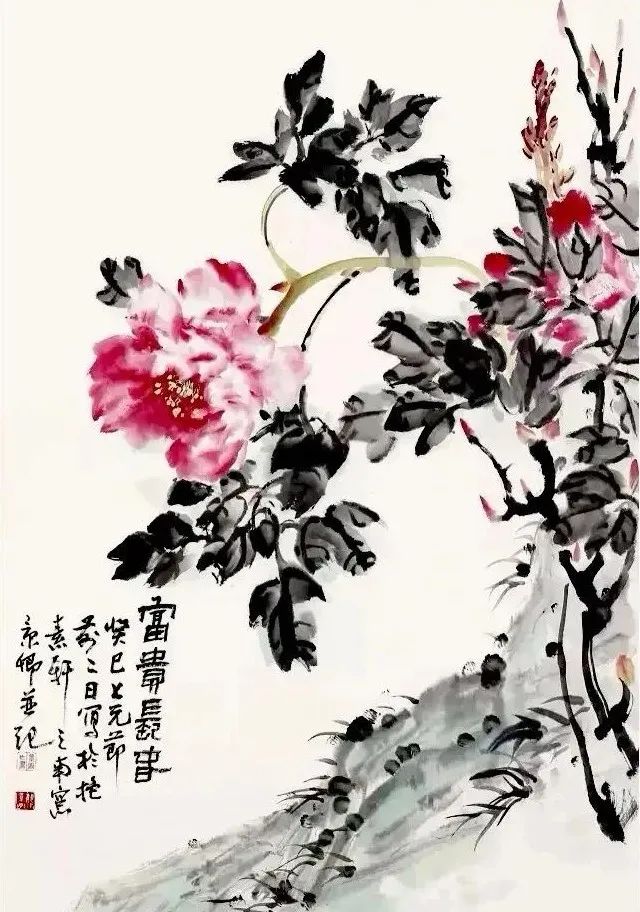 富貴長春
癸巳上元節
前二日寫於抱
素軒之南窗
京卿並記